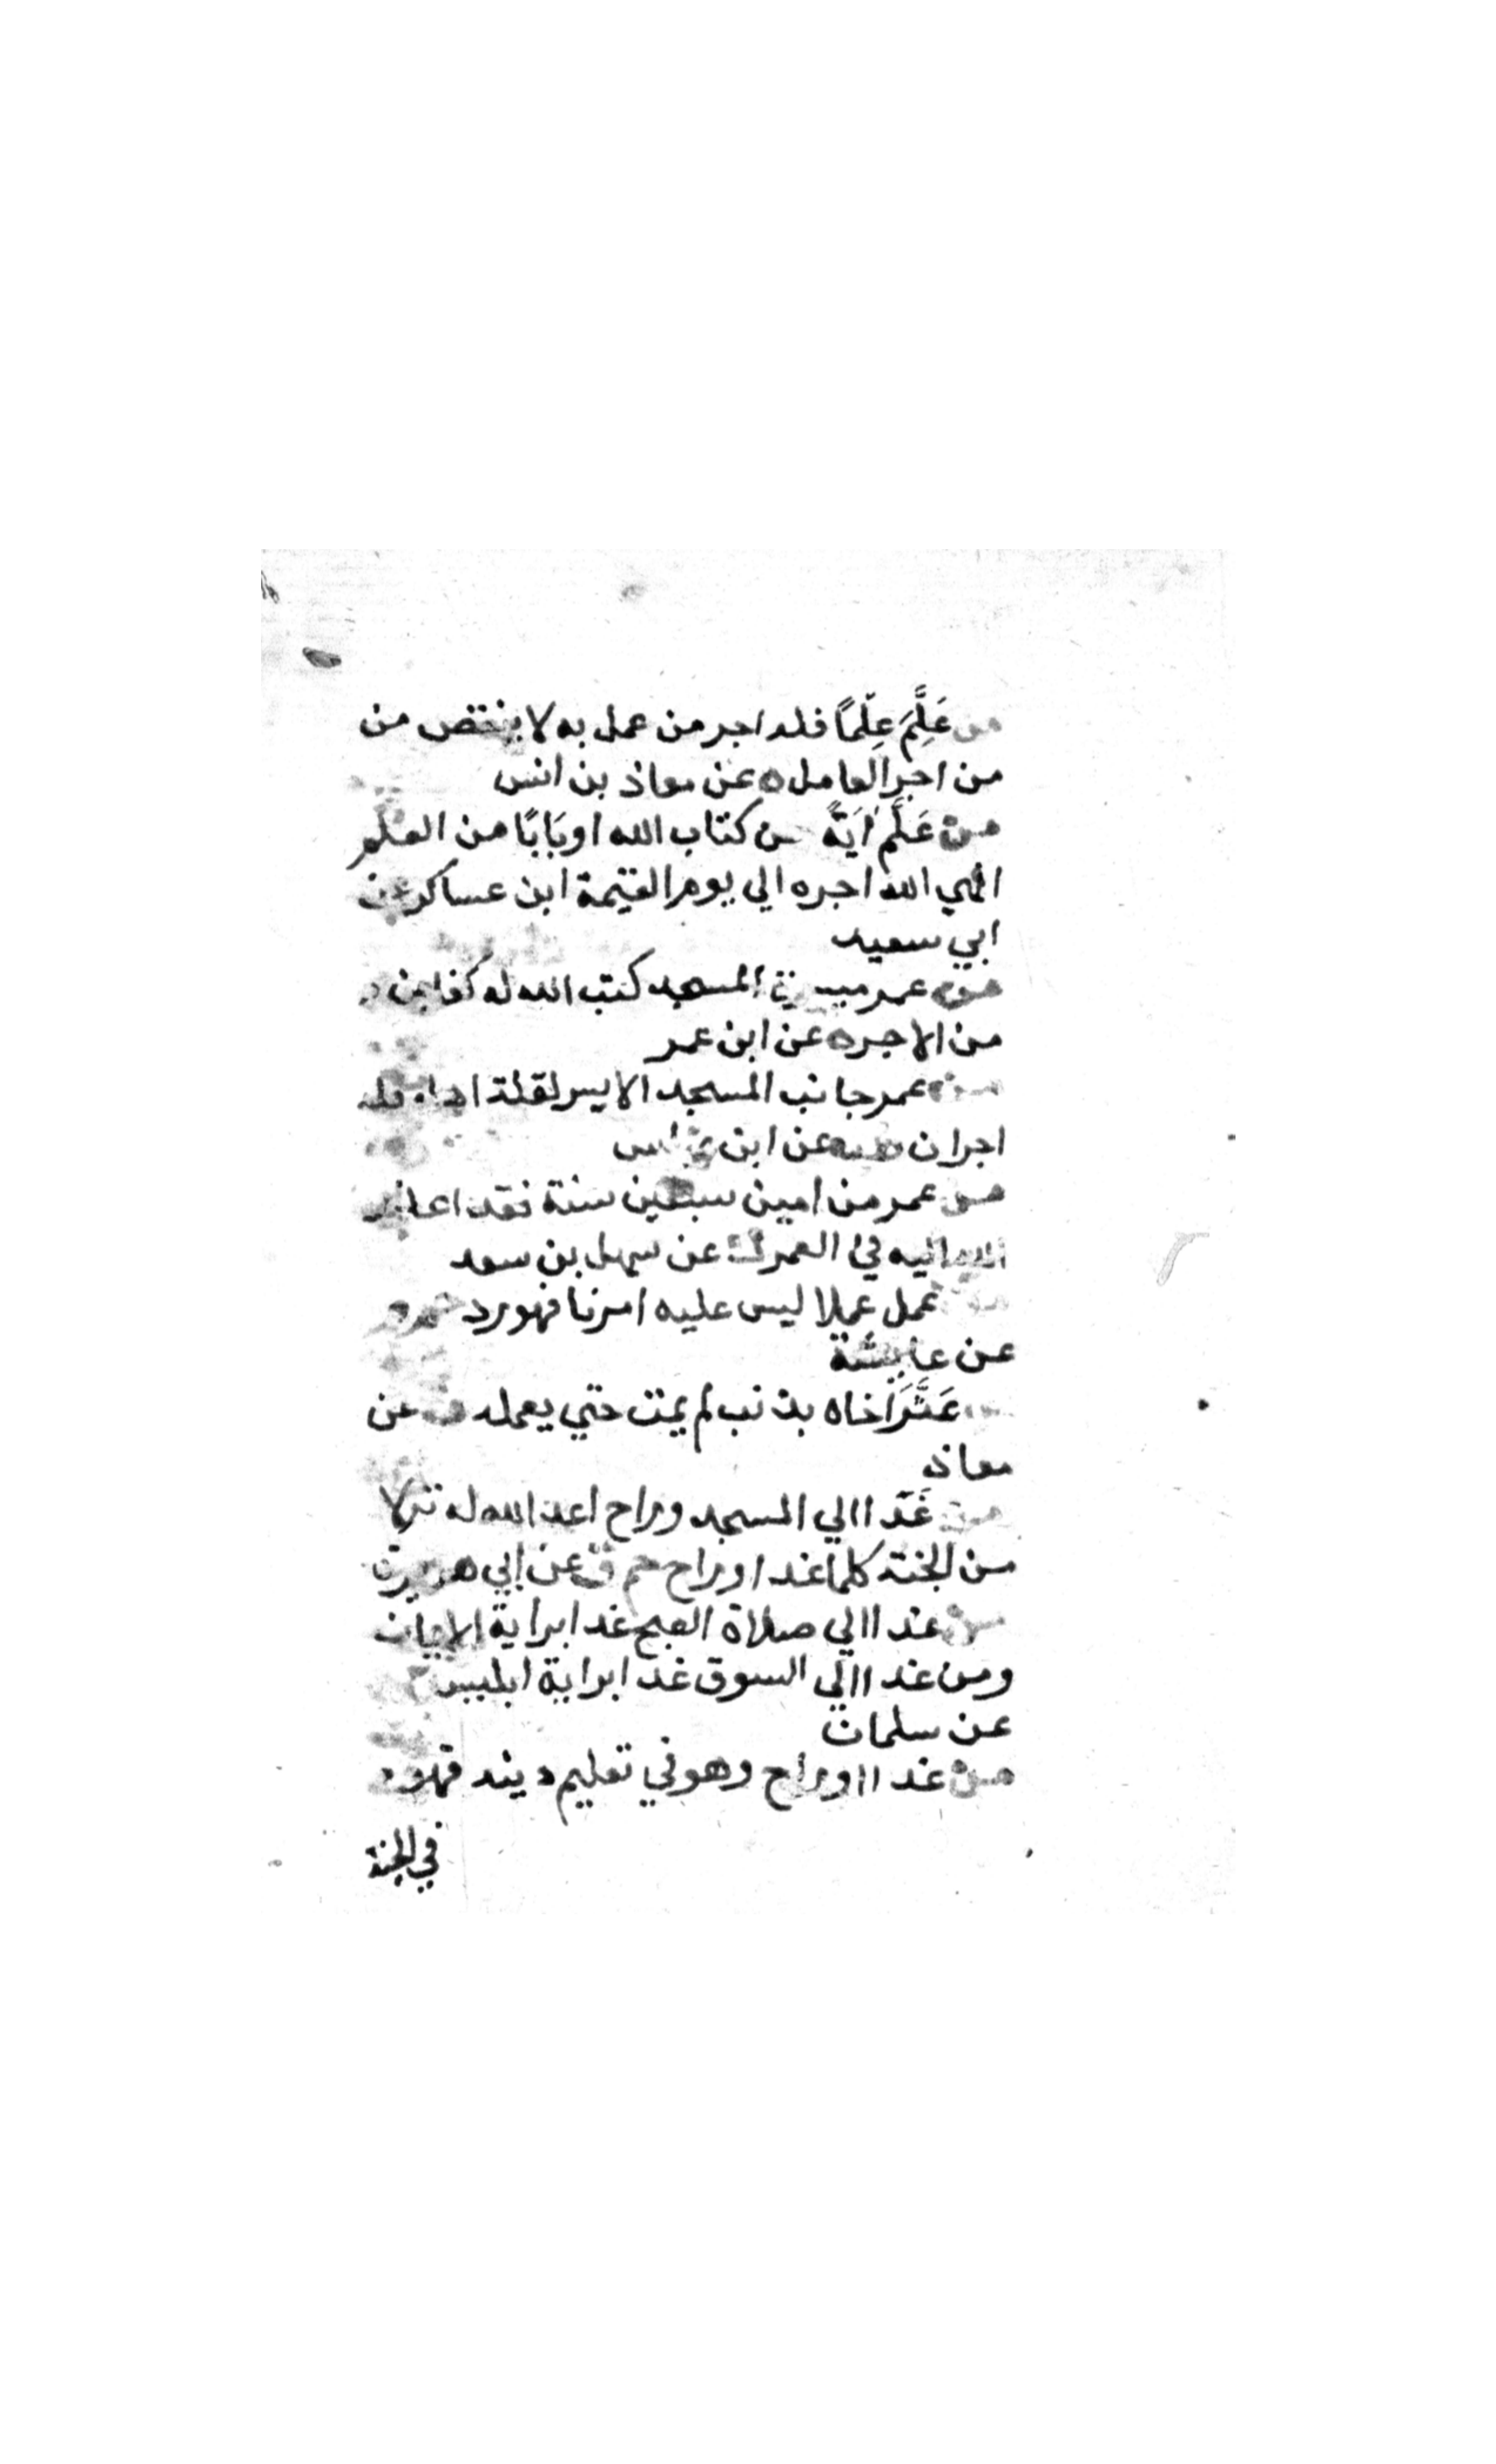 من عَلَّمَ عِلْمًا فله اجر من عمل به لا ينقص من
من اجر العامل ه عن معاذ بن انس
من عَلَّمَ اَيَةً من كتاب الله او بَابًا من العلم
انمي الله اجره الي يوم القيمة ابن عساكر عن
ابي سعيد
من عمر ميسرة المسجد كتب الله له كفلين
من الاجر ه عن ابن عمر
عمر جانب المسجد الايسر لقلة اهله فله
اجران طب عن ابن عباس
من عمر من امتي سبعين سنة فقد اعذر
الله اليه في العمر ك عن سهل بن سعد
عمل عملا ليس عليه امرنا فهو رد حم م
عن عايشة
عَيَّرَ اَخاه بذنب لم يمت حتي يعمله ت عن
معاذ
من غَدَا الي المسجد وراح اعد الله له نزلا
من الجنة كلما غدا وراح حم ق عن ابي هريرة
من غدا الي صلاة الصبح غدا براية الايمان
ومن غدا الي السوق غدا براية ابليس
عن سلمان
من غدا اوراح وهو في تعليم دينه فهو
في الجنة